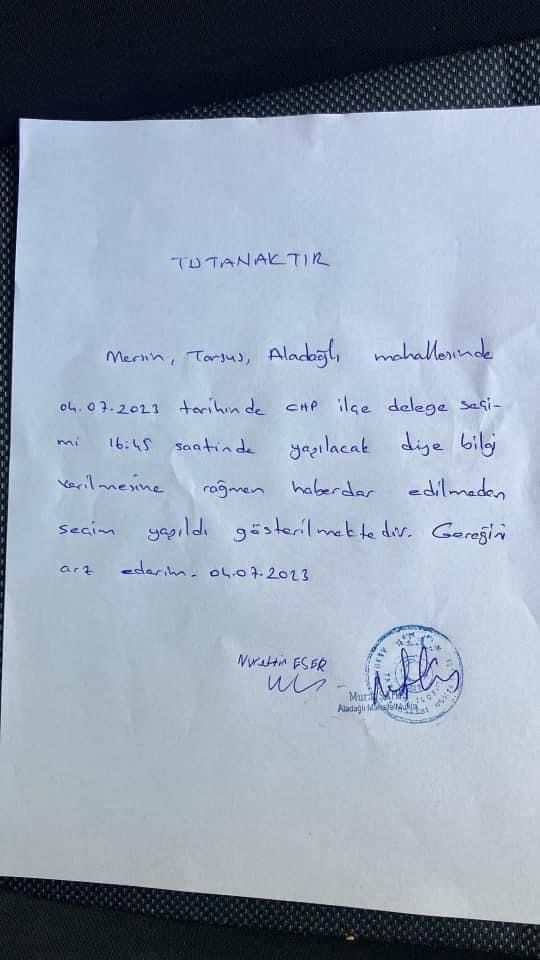 TUTANAKTIR
Mersin, Tarsus, Aladağlı mahallesinde
04.07.2023 tarihinde CHP ilçe delege seçi-
mi 16:45 saatinde yapılacak diye bilgi
verilmesine rağmen haberdar edilmeden
seçim yapıldı gösterilmektedir. Gereğini
arz ederim. 04.07.2023
Nurettin ESER
Aladağlı Mahalle Muhtarı